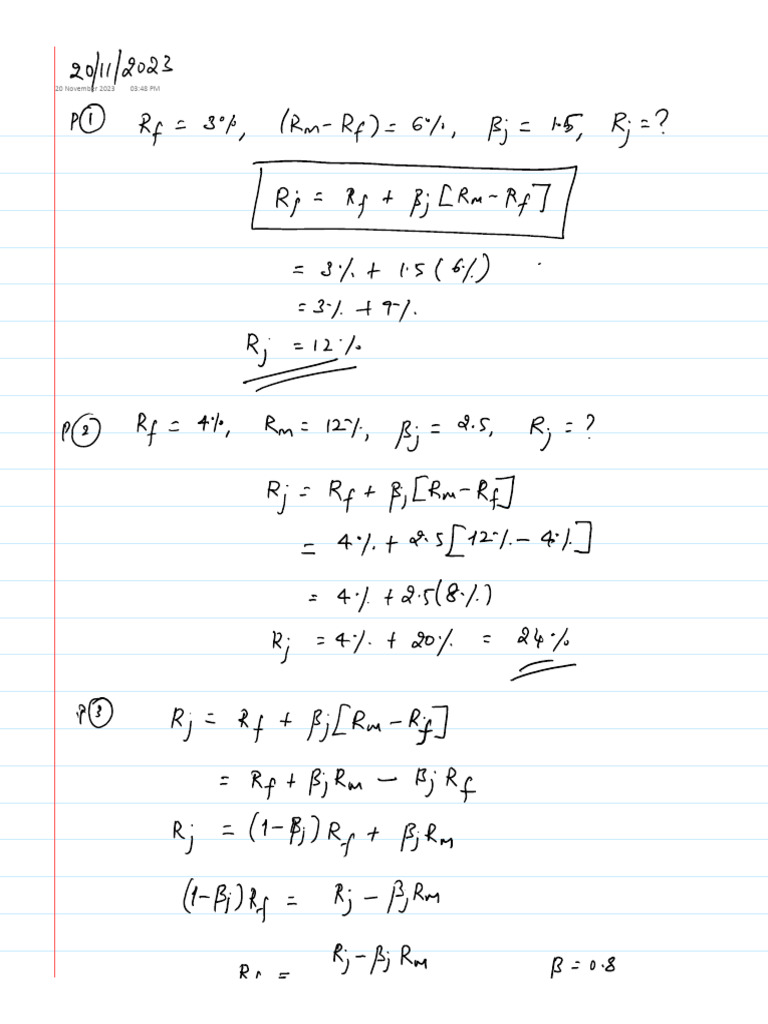 20/11/2023
20 November 2023 03:48 PM
P① Rf = 3%, (Rm - Rf) = 6%, βj = 1.5, Rj = ?
Rj = Rf + βj [Rm - Rf]
= 3% + 1.5 (6%)
= 3% + 9%
Rj = 12%
P② Rf = 4%, Rm = 12%, βj = 2.5, Rj = ?
Rj = Rf + βj [Rm - Rf]
= 4% + 2.5 [12% - 4%]
= 4% + 2.5 (8%)
Rj = 4% + 20% = 24%
P③ Rj = Rf + βj [Rm - Rf]
= Rf + βj Rm - βj Rf
Rj = (1 - βj) Rf + βj Rm
(1 - βj) Rf = Rj - βj Rm
Rj - βj Rm
= β = 0.8